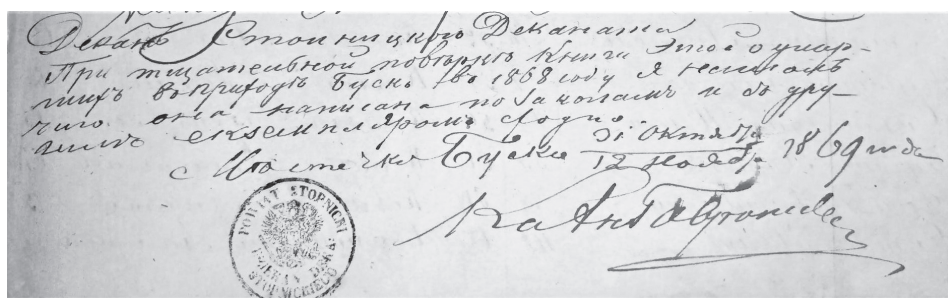 Деканъ Стопницкого Деканата
При тщательной повѣркѣ Книги этой о умер-
шихъ въ приходѣ Бускъ въ 1868 году я
чиго она написана по законамъ и съ дру-
гимъ екземпляромъ сходно.
Мѣстечко Буско 31 Октября / 12 Ноября 1869 года
POWIAT STOPNICKI
DZIEKAN DEKA:
STOPNICKIEGO